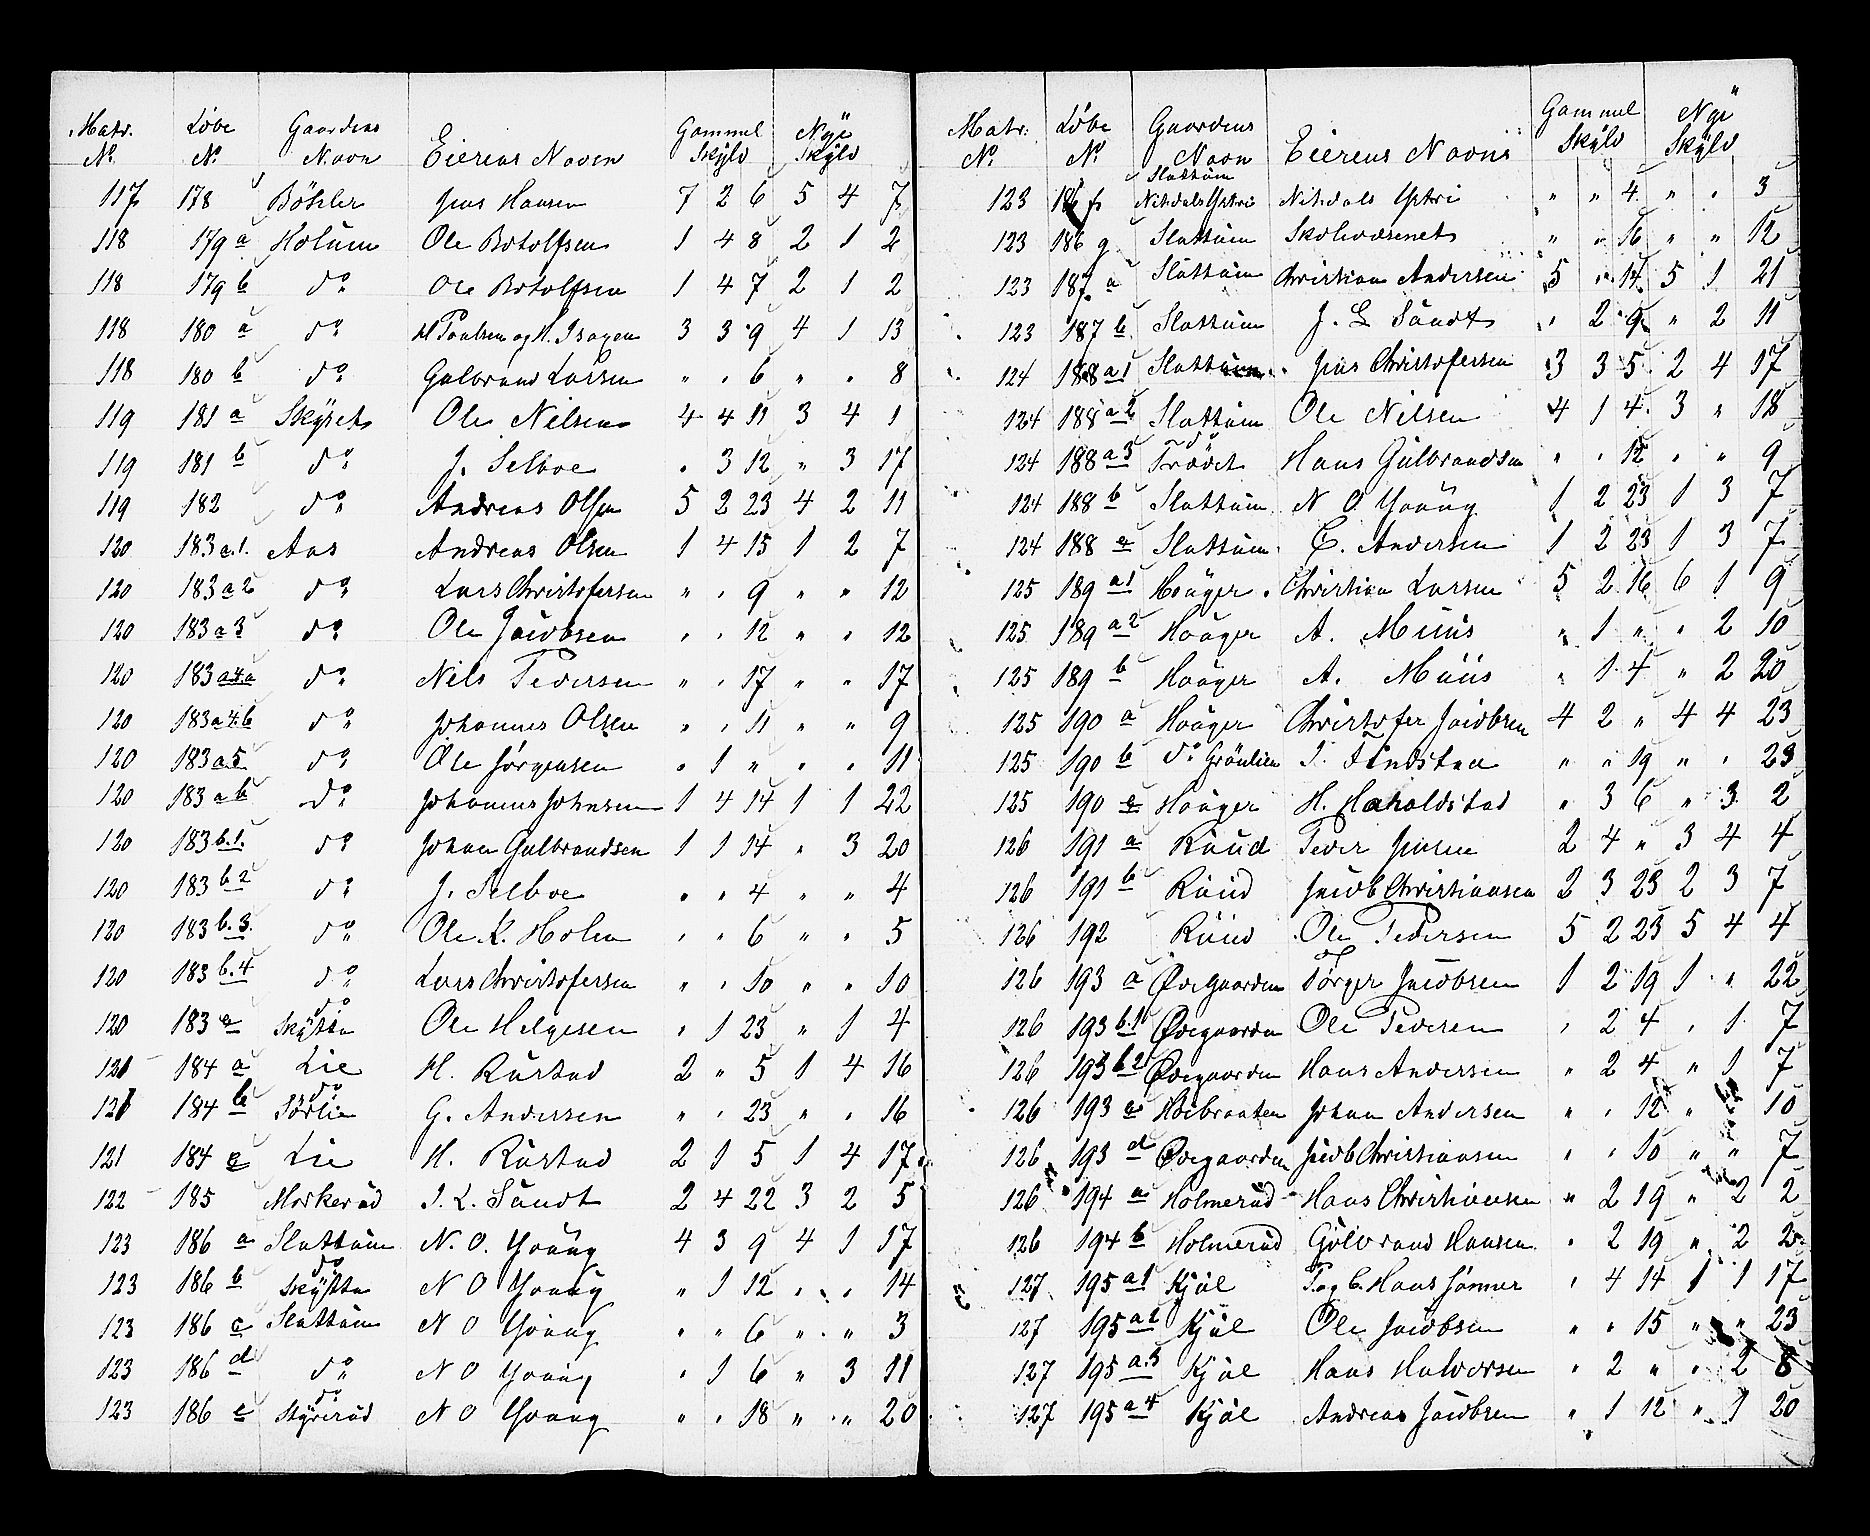 Matr. Løbe Gaardens Eierens Navn Gammel Nye
No. No. Navn Skyld Skyld
117 178 Böhler Jens Hansen 7 2 6 5 4 7
118 179 a Holum Ole Botolfsen 1 4 8 2 1 2
118 179 b do Ole Botolfsen 1 4 7 2 1 2
118 180 a do H Poulsen og H. Isagen 3 3 9 4 1 13
118 180 b do Gulbrand Larsen " " 6 " " 8
119 181 a Skÿset Ole Nilsen 4 4 11 3 4 1
119 181 b do J. Selboe " 3 12 " 3 17
119 182 do Andreas Olsen 5 2 23 4 2 11
120 183 a.1. Aas Andreas Olsen 1 4 15 1 2 7
120 183 a 2 do Lars Christofersen " " 9 " " 12
120 183 a 3 do Ole Jacobsen " " 12 " " 12
120 183 a 4 a do Nils Pedersen " " 17 " " 17
120 183 a 4. b do Johannes Olsen " " 11 " " 9
120 183 a 5 do Ole Jørgensen " 1 " " " 11
120 183 a 6 do Johannes Johnsen 1 4 14 1 1 22
120 183 b.1. do Johan Gulbrandsen 1 1 14 " 3 20
120 183 b 2 do J. Selboe " " 4 " " 4
120 183 b. 3. do Ole K. Holm " " 6 " " 5
120 183 b. 4 do Lars Christofersen " " 10 " " 10
120 183 c do Skÿtta Ole Helgesen " 1 23 " 1 4
121 184 a Lie H. Rustad 2 " 5 1 4 16
121 184 b do Sørlie G. Andersen " " 23 " " 16
121 184 c Lie H. Rustad 2 1 5 1 4 17
122 185 Morkerud J. L. Sundt 2 4 22 3 2 5
123 186 a Slattum N. O. Young 4 3 9 4 1 17
123 186 b do Skÿtta N O Young " 1 12 " " 14
123 186 c Slattum N O Young " " 6 " " 3
123 186 d do N O Young " 1 6 " 3 11
123 186 e do Styrerud N O Young " " 18 " " 20
Matr. Løbe Gaardens Eierens Navn Gammel Nye
No. No. Navn Skyld Skyld
123 186 f Slattum Nitedals Ystri Nitedals Ystri " " 4 " " 3
123 186 g Slattum Skolevæsenet " " 16 " " 12
123 187 a Slattum Christian Andersen 5 " 14 5 1 21
123 187 b Slattum J. L Sundt " 2 9 " 2 11
124 188 a 1 Slattum Jens Christofersen 3 3 5 2 4 17
124 188 a 2 Slattum Ole Nilsen 4 1 4 3 " 18
124 188 a 3 do Trädet Hans Gulbrandsen " " 12 " " 9
124 188 b Slattum N O Young 1 2 23 1 3 7
124 188 c Slattum C. Andersen 1 2 23 1 3 7
125 189 a 1 Hauger Christian Larsen 5 2 16 6 1 9
125 189 a 2 Hauger A. Muus " 1 " " 2 10
125 189 b Hauger A. Muus " 1 4 " 2 20
125 190 a Hauger Christofer Jacobsen 4 2 " 4 4 23
125 190 b do Grönlien J. Findstad " " 19 " " 23
125 190 c Hauger H. Haraldstad " 3 6 " 3 2
126 191 a Ruud Peder Jensen 2 4 " 3 4 4
126 191 b Ruud Jacob Christiansen 2 3 23 2 3 7
126 192 Ruud Ole Pedersen 5 2 23 5 4 4
126 193 a Ødegaarden Törger Jacobsen 1 2 19 1 " 22
126 193 b.1 Ødegaarden Ole Pedersen " 2 4 " 1 7
126 193 b 2 Ødegaarden Hans Andersen " 2 4 " 1 7
126 193 c Høibraaten Johan Andersen " " 12 " " 10
126 193 d Ødegaarden Jacob Christiansen " " 10 " " 7
126 194 a Holmerud Hans Christiansen " 2 19 " 2 2
126 194 b Holmerud Gulbrand Hansen " 2 19 " 2 2
127 195 a 1 Kjul P. og C. Hans Sønner " 4 14 1 1 17
127 195 a 2 Kjul Ole Jacobsen " " 15 " " 23
127 195 a. 3 Kjul Hans Halvorsen " 2 " " 2 8
127 195 a 4 Kjul Andreas Jacobsen " 1 12 " 1 20